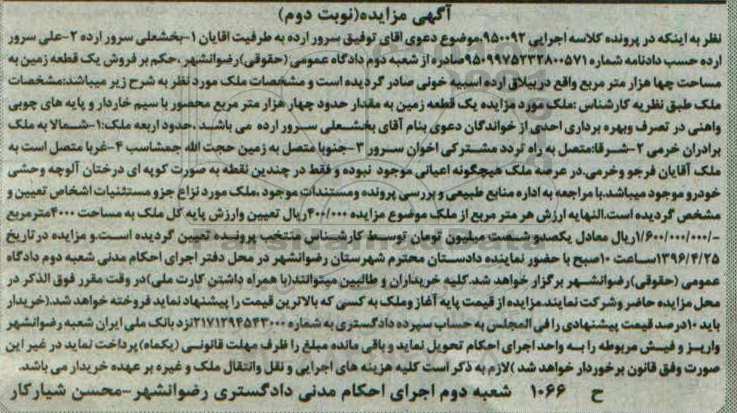 آگهی مزایده(نوبت دوم)
نظر به اینکه در پرونده کلاسه اجرایی ۹۵۰۰۹۲موضوع دعوی آقای توفیق سرور ارده به طرفیت اقایان ۱-بخشعلی سرور ارده ۲-علی سرور
ارده حسب دادنامه شماره ۹۵۰۹۹۷۵۲۳۲۸۰۰۵۷۱صادره از شعبه دوم دادگاه عمومی (حقوقی)رضوانشهر ،حکم بر فروش یک قطعه زمین به
مساحت چها هزار متر مربع واقع در ییلاق ارده اسبیه خونی صادر گردیده است و مشخصات ملک مورد نظر به شرح زیر میباشد:مشخصات
ملک طبق نظریه کارشناس :ملک مورد مزایده یک قطعه زمین به مقدار حدود چهار هزار متر مربع محصور با سیم خاردار و پایه های چوبی
واهنی در تصرف وبهره برداری احدی از خواندگان دعوی بنام آقای بخشعلی سرور ارده می باشد .حدود اربعه ملک:۱-شمالا به ملک
برادران خرمی ۲-شرقا:متصل به راه تردد مشترکی اخوان سرور ۳-جنوبا متصل به زمین حجت الله جمشاسب ۴-غربا متصل است به
ملک آقایان فرجو وخرمی.در عرصه ملک هیچگونه اعیانی موجود نبوده و فقط در چندین نقطه به صورت کوپه ای درختان آلوچه وحشی
خودرو موجود میباشد.با مراجعه به اداره منابع طبیعی و بررسی پرونده ومستندات موجود ،ملک مورد نزاع جزو مستثنیات اشخاص تعیین و
مشخص گردیده است.النهایه ارزش هر متر مربع از ملک موضوع مزایده ۴۰۰/۰۰۰ریال تعیین وارزش پایه کل ملک به مساحت ۴۰۰۰مترمربع
-/۱/۶۰۰/۰۰۰/۰۰۰ریال معادل یکصدو شصت میلیون تومان توسط کارشناس منتخب پرونده تعیین گردیده است.و مزایده در تاریخ
۱۳۹۶/۴/۲۵ساعت ۱۰صبح با حضور نماینده دادستان محترم شهرستان رضوانشهر در محل دفتر اجرای احکام مدنی شعبه دوم دادگاه
عمومی (حقوقی)رضوانشهر برگزار خواهد شد.کلیه خریداران و طالبین میتوانند(با همراه داشتن کارت ملی)در وقت مقرر فوق الذکر در
محل مزایده حاضر وشرکت نمایند.مزایده از قیمت پایه آغاز وملک به کسی که بالاترین قیمت را پیشنهاد نماید فروخته خواهد شد.(خریدار
باید ۱۰درصد قیمت پیشنهادی را فی المجلس به حساب سپرده دادگستری به شماره ۲۱۷۱۲۹۴۵۴۳۰۰۰نزد بانک ملی ایران شعبه رضوانشهر
واریز و فیش مربوطه را به واحد اجرای احکام تحویل نماید و باقی مانده مبلغ را ظرف مهلت قانونی (یکماه)پرداخت نماید در غیر این
صورت وفق قانون برخوردار خواهد شد )لازم به ذکر است کلیه هزینه های اجرایی و نقل وانتقال ملک و غیره بر عهده خریدار می باشد.
ح ۱۰۶۶ شعبه دوم اجرای احکام مدنی دادگستری رضوانشهر-محسن شیارکار